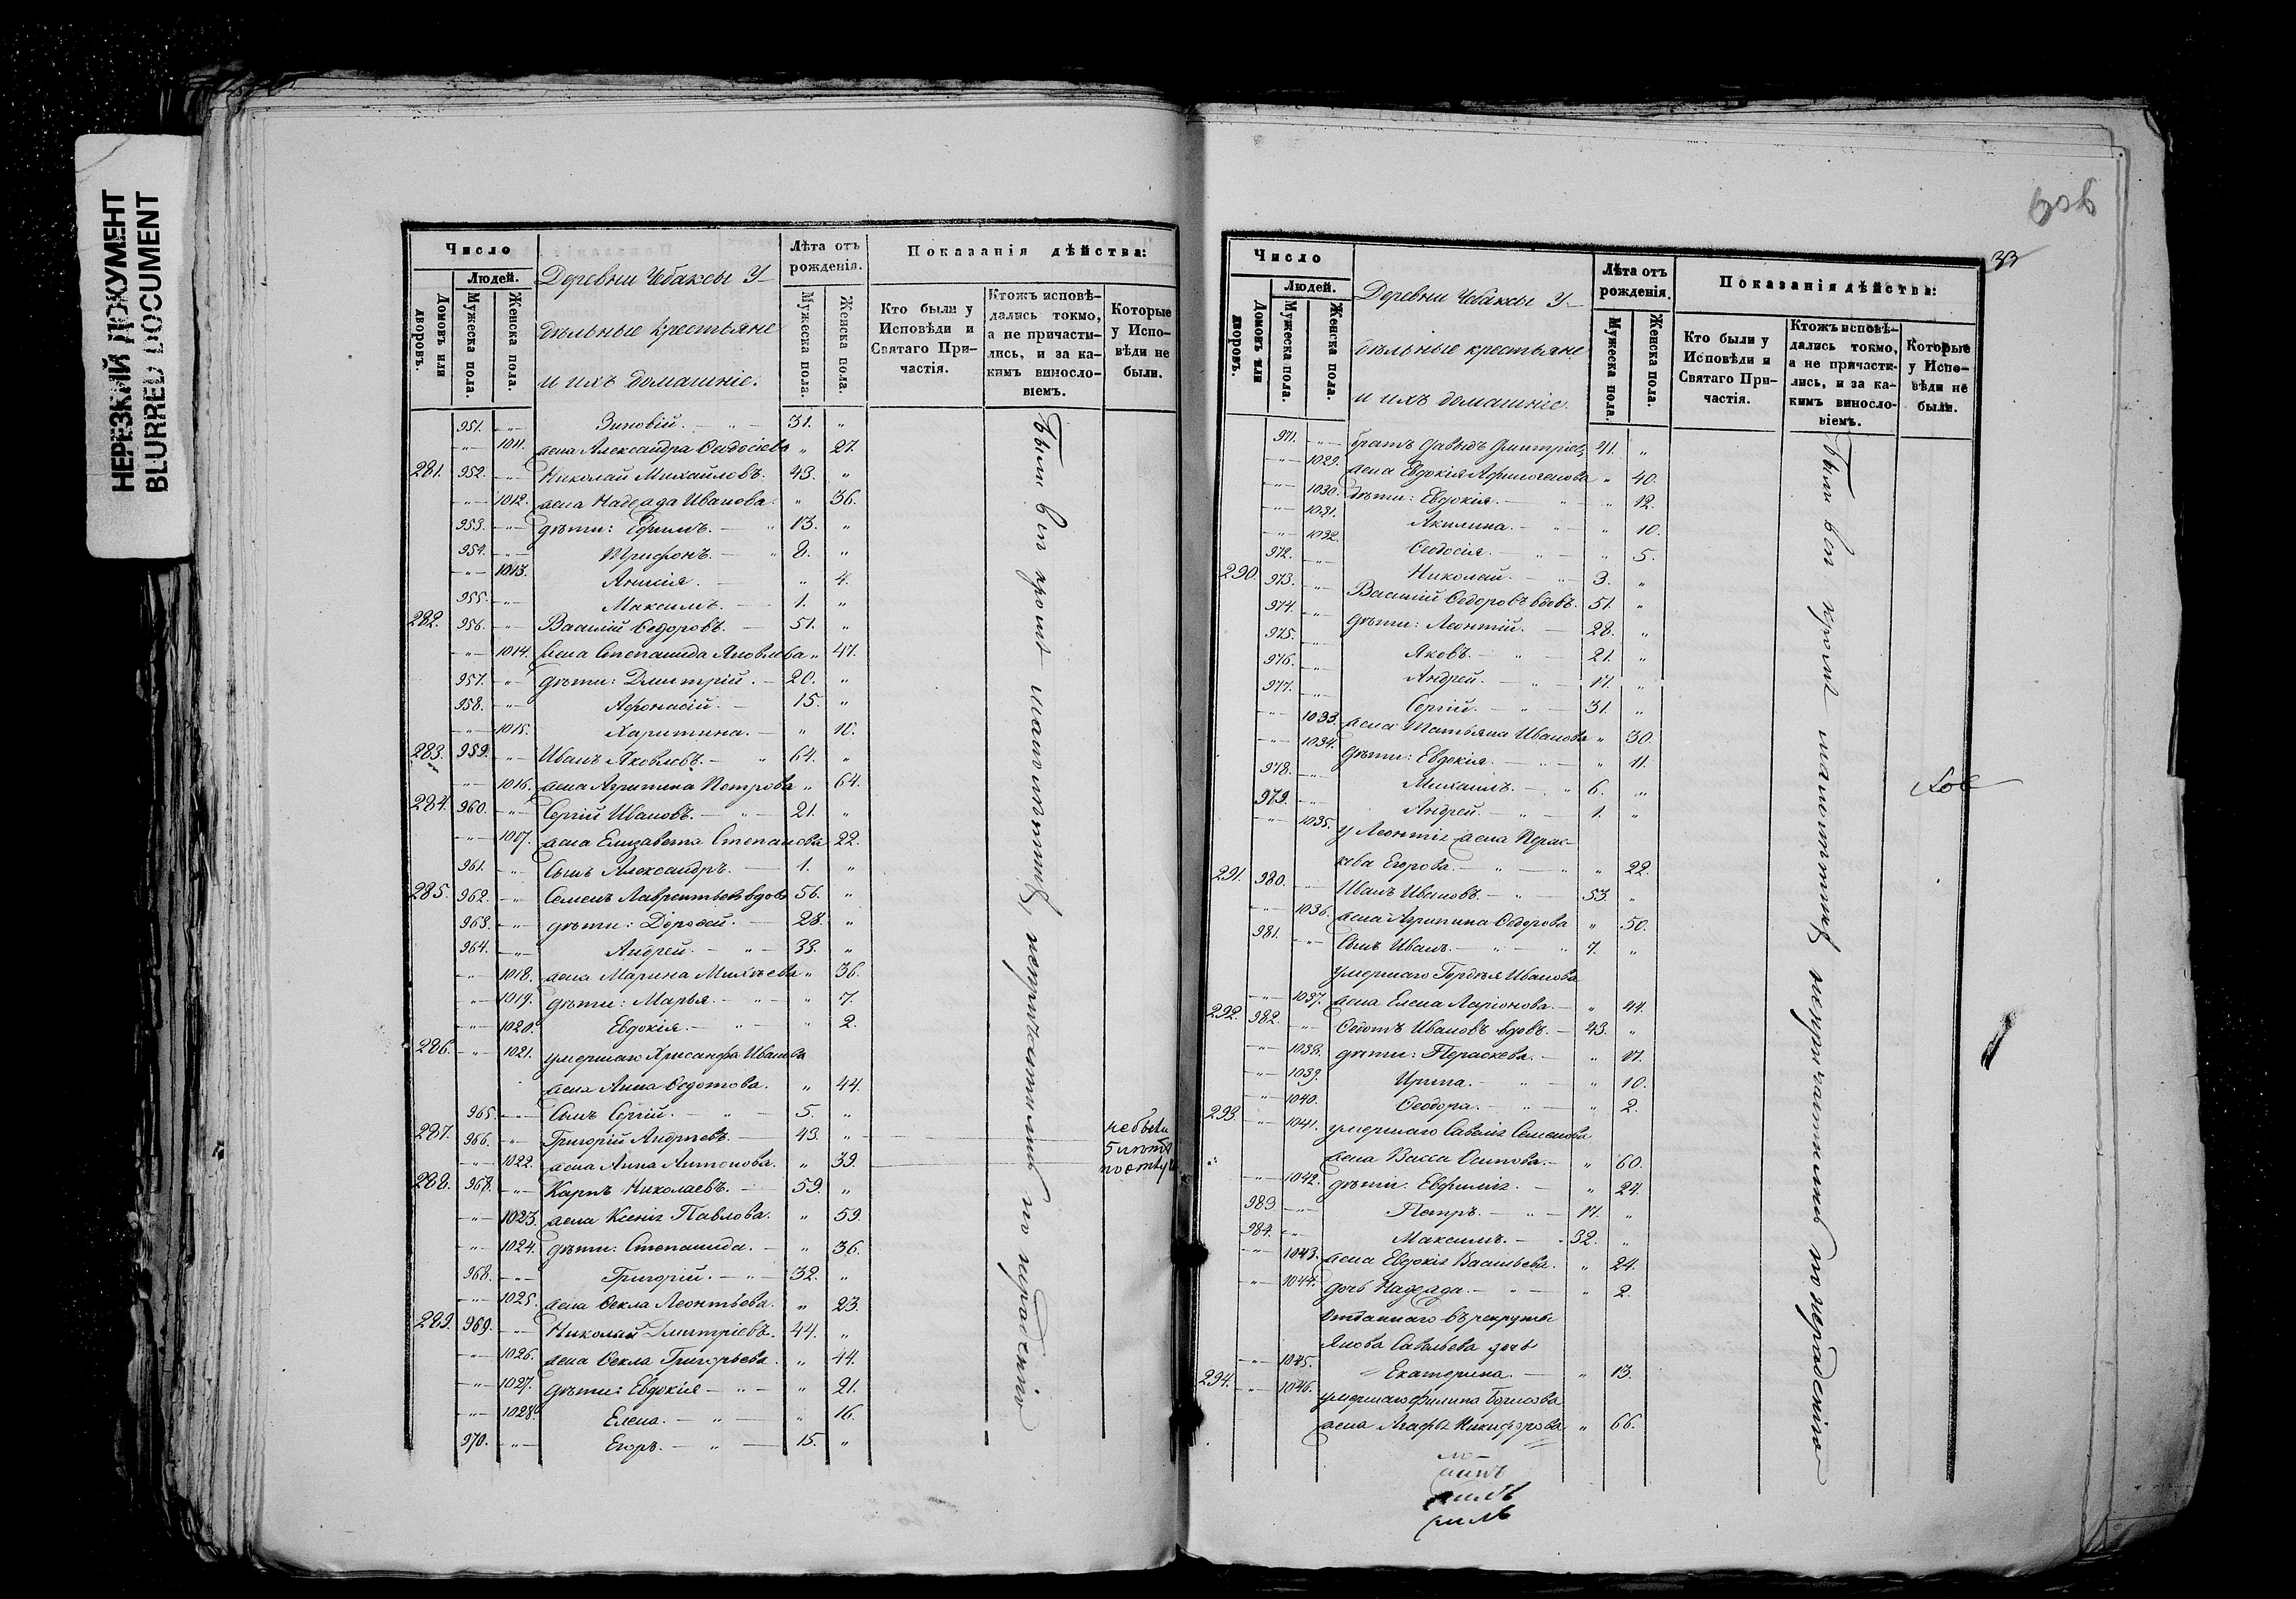 НЕРЕЗКИЙ ДОКУМЕНТ
BLURRED DOCUMENT
Число
Людей.
Домовъ или дворовъ.
Мужеска пола.
Женска пола.
Деревни Чебаксы У-
дѣльные крестьяне
и ихъ домашніе.
Лѣта отъ рожденія.
Мужеска пола.
Женска пола.
Показанія дѣйства:
Кто были у Исповѣди и Святаго При-частія.
Ктожъ исповѣ-дались токмо, а не причасти-лись, и за ка-кимъ винсло-віемъ.
Которые у Испо-вѣди не были.
951. Зиновій. 31. „
1011. жена Александра Ѳеодосіева „ 27.
281. 952. Николай Михайловъ. 43. „
1012. жена Надежда Иванова. „ 36.
953. дѣти: Ефимъ. 13. „
954. Трифонъ. 8. „
1013. Анисія. „ 4.
955. Максимъ. 1. „
282. 956. Василій Ѳедоровъ. 51. „
1014. жена Степанида Яковлева „ 47.
957. дѣти: Димитрій. 20. „
958. Афонасій. 15. „
1015. Харитина. „ 10.
283. 959. Иванъ Яковлевъ. 64. „
1016. жена Агрипина Петрова „ 64.
284. 960. Сергій Ивановъ. 21. „
1017. жена Елизавета Степанова 22.
961. Сынъ Александръ. 1. „
285. 962. Семенъ Лаврентьевъ вдов 56. „
963. дѣти: Дороѳей. 28. „
964. Андрей. 33. „
1018. жена Марина Михѣева „ 36.
1019. дѣти: Марья. „ 7.
1020. Евдокія. „ 2.
286. 1021. умершаго Хрисанфа Иванова
жена Анна Ѳедотова. „ 44.
965. Сынъ Сергій. 5. „
287. 966. Григорій Андреевъ. 43. „
1022. жена Анна Антонова. „ 39.
288. 967. Карпъ Николаевъ. 59. „
1023. жена Ксенія Павлова. „ 59.
1024. дѣти: Степанида. „ 36.
968. Григорій. 32. „
1025. жена Ѳекла Леонтьева. „ 23.
289. 969. Николай Димитріевъ. 44. „
1026. жена Ѳекла Григорьева. „ 44.
1027. дѣти: Евдокія „ 21.
1028. Елена. „ 16.
970. Егоръ. 15. „
Были вси кромѣ
33
Число
Людей.
Домовъ или дворовъ.
Мужеска пола.
Женска пола.
Деревни Чебаксы У-
дѣльные крестьяне
и ихъ домашніе.
Лѣта отъ рожденія.
Мужеска пола.
Женска пола.
Показанія дѣйства:
Кто были у Исповѣди и Святаго При-частія.
Ктожъ исповѣ-дались токмо, а не причасти-лись, и за ка-кимъ винсло-віемъ.
Которые у Испо-вѣди не были.
971. братъ Давыдъ Дмитріевъ 41. „
1029. жена Евдокія Афиногенова „ 40.
1030. дѣти: Евдокія. „ 12.
1031. Акилина. „ 10.
1032. Ѳеодосія. „ 5.
972. Николай. 3. „
290. 973. Василій Ѳедоровъ вдовъ. 51. „
974. дѣти: Леонтій. 28. „
975. Яковъ. 21. „
976. Андрей. 17. „
977. Сергій. 31. „
1033. жена Татьяна Иванова „ 30.
1034. дѣти: Евдокія. „ 11.
978. Михаилъ. 6. „
979. Андрей. 1. „
1035. у Леонтія жена Перас-
кева Егорова. „ 22.
291. 980. Иванъ Ивановъ. 53. „
1036. жена Агрипина Ѳедорова „ 50.
981. Сынъ Иванъ. 7. „
умершаго Гордѣя Иванова
1037. жена Елена Ларіонова. „ 44.
292. 982. Ѳедотъ Ивановъ вдовъ. 43. „
1038. дѣти: Пераскева. „ 17.
1039. Ирина. „ 10.
1040. Ѳеодора. „ 2.
293. 1041. умершаго Савелія Семенова
жена Васса Осипова. „ 60.
1042. дѣти: Евфимія. „ 24.
983. Петръ. 17. „
984. Максимъ. 32. „
1043. жена Евдокія Васильева. „ 24.
1044. дочь Надежда. „ 2.
отданнаго въ рекруты
Якова Савельева дочь
1045. Екатерина. „ 13.
294. 1046. умершаго Филипа Борисова
жена Агафья Никифорова „ 66.
Были вси кромѣ